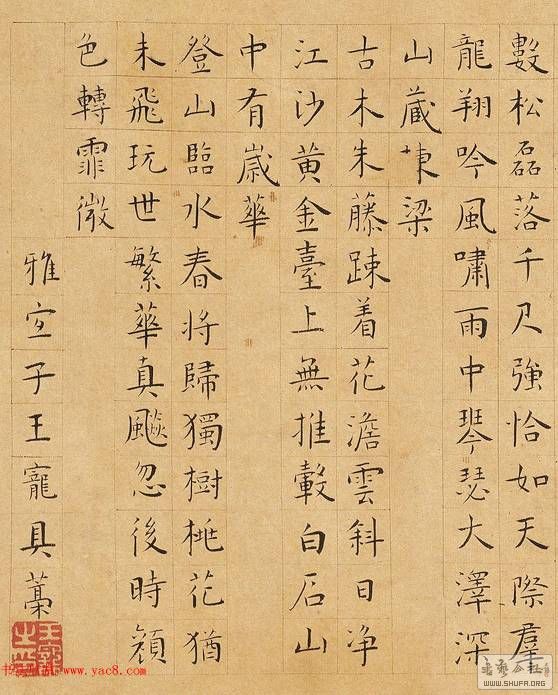 數松磊落千尺強恰如天際羣
龍翔吟風嘯雨中琴瑟大澤深
山藏棟梁
古木朱藤踈着花澹雲斜日净
江沙黃金臺上無推轂白石山
中有歲華
登山臨水春將歸獨樹桃花猶
未飛玩世繁華真飈忽後時顔
色轉霏微
雅宜子王寵具藁
www.yac8.com
WWW.SHUFR.ORG